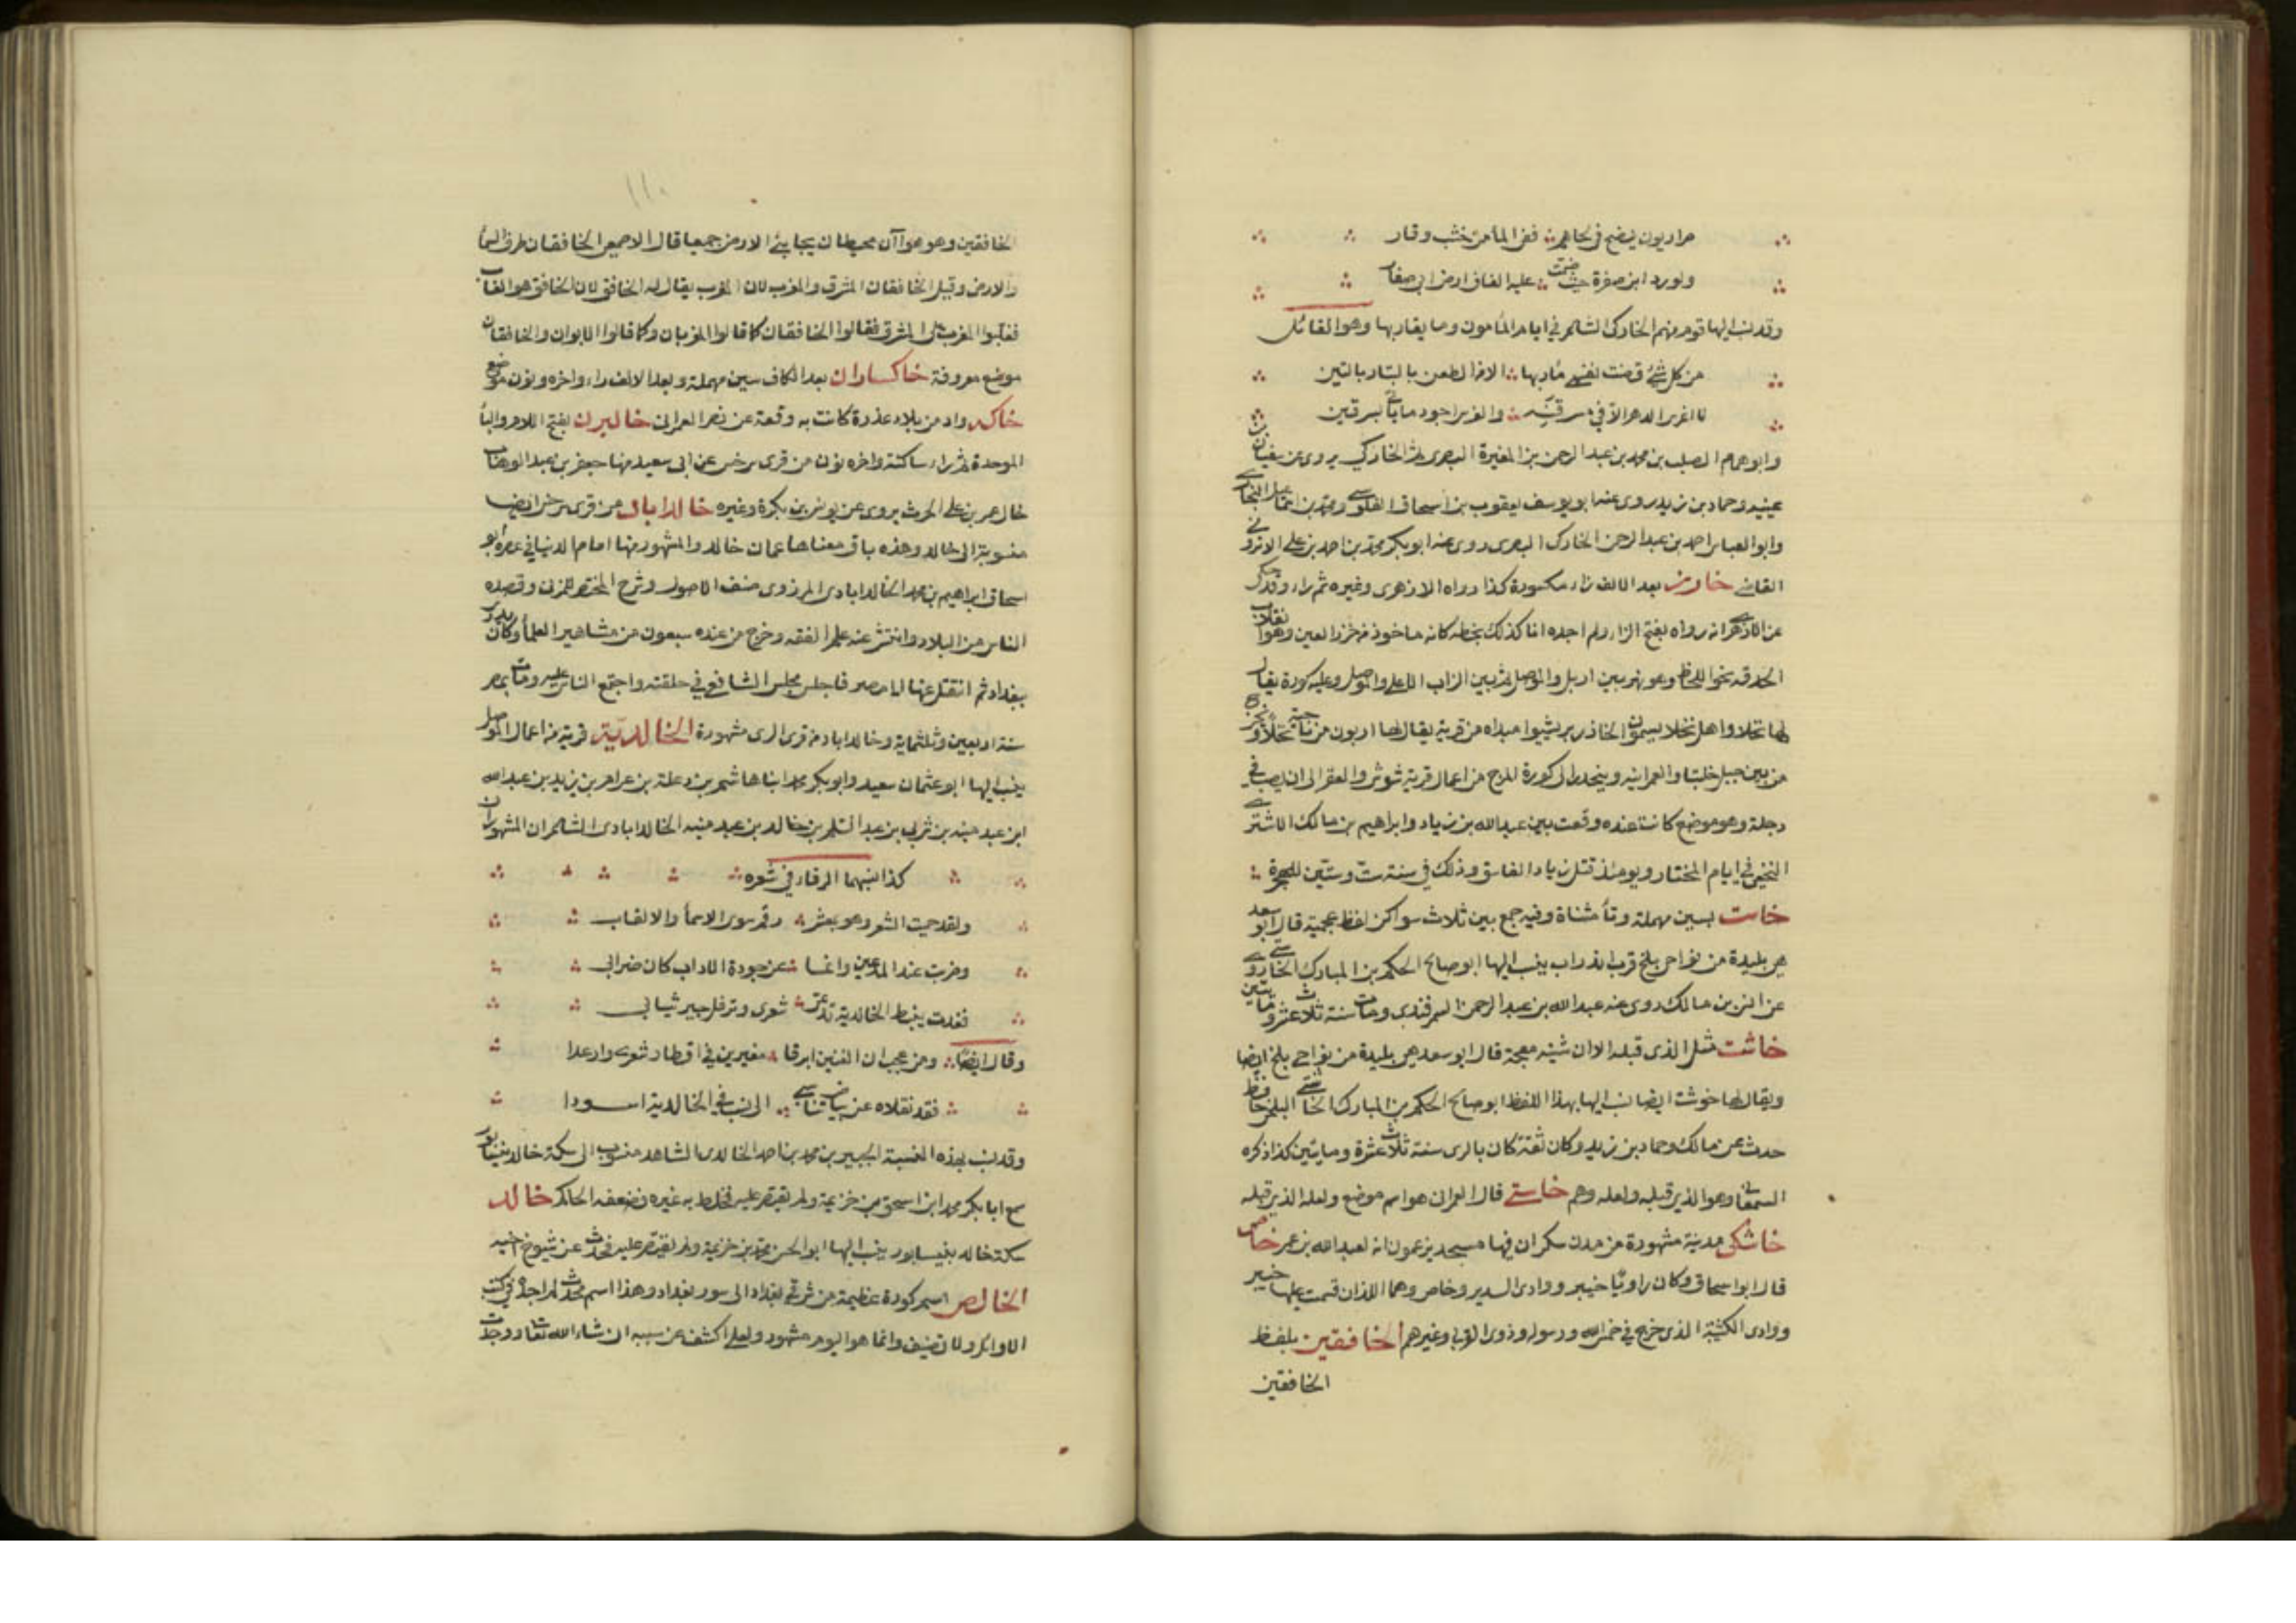 صراديون ينضح في لحاهم نفي الماء من خشب وقار
ولو رد ابن صفرة حيث ضمت عليه الغاف ارض ابي صفار
وقد نسب اليها قوم منهم الخاركي الشاعر في ايام المأمون وما يقاربها وهو القائل
من كل شئ قضت نفسي مآربها الا من الطعن بالبتار بالتين
لا اغرس الدهر الا في مسرقنة والغرس اجود ما يأتي بسرقين
وابو همام الصلت بن محمد بن عبد الرحمن بن المغيرة البصري ثم الخاركي يروى عن سفيان بن
عيينه وحماد بن زيد روى عنه ابو يوسف يعقوب بن اسحاق القلوسي ومحمد بن اسماعيل البخاري
وابو العباس احمد بن عبد الرحمن الخاركي البصري روى عنه ابو بكر محمد بن احمد بن علي
القاضي خازر بعد الالف زاء مكسورة كذا رواه الازهرى وغيره ثم راء وقد حكى
عن الازهرى انه رواه بفتح الزاء ولم اجده انا كذلك بخطه كانه ماخوذ من خزر العين وهو انقلاب
الحدقة نحو اللحاظ وهو نهر بين اربل والموصل ثم بين الزاب الاعلى والموصل وعليه كورة يقال
لها نخلا واهل نخلا يسمون الخازر بريشوا مبداه من قرية يقال لها اربون من ناحية نخلا ويخرج
من بين جبل خلبتا والعمرانيه وينحدر الى كورة المرج من اعمال قرية شوش والعقر الى ان يصب في
دجلة وهو موضع كانت عنده وقعت بين عبد الله بن زياد وابراهيم بن مالك الاشتر
النخعي في ايام المختار ويومئذ قتل زياد الفاسق وذلك في سنة ست وستين للهجرة
خاست بسين مهملة وتاء مثناة وفيه جمع بين ثلاث سواكن لفظ عجمية قال ابو سعد
هي بليدة من نواحي بلخ قرب اندراب ينسب اليها ابو صالح الحكم بن المبارك
عن مالك روى عنه عبد الله بن عبد الرحمن السمرقندي ومات سنة ثلاث عشر ومايتين
خاشت مثل الذى قبله الا ان شينه معجمة قال ابو سعد هي بليدة من نواحي بلخ ايضا
ويقال لها خوشت ايضا نسب اليها بهذا اللفظ ابو صالح الحكم بن المبارك الخاشتي البلخي حافظ
حدث عن مالك وحماد بن زيد وكان ثقة كان بالرى سنة ثلاث عشرة ومايتين كذا ذكره
السمعاني وهو الذي قبله ولعله وهم خاستي قال العمرانى هو اسم موضع ولعله الذي قبله
خاشكى مدينة مشهورة من مدن مكران فيها مسجد يزعمون انه لعبد الله بن عمر خاص
قال ابو اسحاق وكان راويا خيبر ووادى السدير وخاص وهما اللذان قسمت عليها خيبر
ووادى الكتيبة الذى خرج في خمس الله ورسوله وذوى القربا وغيرهم الخافقين بلفظ
الخافقين
١١٠
الخافقين وهو هوا آن محيطان بجانبي الارض جميعا قال الاصمعي الخافقان طرفا السماء
والارض وقيل الخافقان المشرق والمغرب لان المغرب يقال له الخافق لان الخافق هو الغايب
فغلبوا المغرب على المشرق فقالوا الخافقان كما قالوا المغربان وكما قالوا الابوان والخافقان
موضع معروفة خاكساران بعد الكاف سين مهملة وبعد الالف راء واخره نون موضع
خاك واد من بلاد عذرة كانت به وقعة عن نصر العمرانى خالبرن بفتح اللام والباء
الموحدة ثم راء ساكنة واخره نون من قرى سرخس عن ابى سعيد منها جعفر بن عبد الوهاب
خال عمر بن على الحرث يروى عن يونس بن بكرة وغيره خالداباذ من قرى سرخس ايضا
منسوبة الى خالد وهذه باق معناها عمان خالد والمشهور منها امام الدنيا في عصره ابو
اسحاق ابراهيم بن محمد الخالداباذى المروزى مصنف الاصول وشرح المختصر للمزنى وقصده
الناس من البلاد وانتشر عنه علم الفقه وخرج من عنده سبعون من مشاهير العلماء وكان يدرس
ببغداد ثم انتقل عنها الى مصر فاجلس مجلس الشافعي في حلقته واجتمع الناس عليه ومات بمصر
سنة اربعين وثلثماية وخالداباد من قرى الرى مشهورة الخالدية قرية من اعمال الموصل
ينسب اليها ابو عثمان سعيد وابو بكر محمد ابنا هاشم بن وعلة بن عرام بن يزيد بن عبد الله
ابن عبد منبه بن يثربي بن عبد السلم بن خالد بن عبد منبه الخالدابادى الشاعران المشهوران
كذا نسبهما الرفاء في شعره
ولقد حميت الشعر وهو بمعشر رقم سوى الاسماء والالقاب
وضربت عند المدعين وانما عن جودة الاداب كان ضرابى
فغدت ببغط الخالدية تدعي شعرى وترفل حبير ثيابى
وقال ايضا ومن عجب ان الغبيين ابرقا مغيرين في اقطار شعري وارعدا
فقد نقلاه عن بياض مناسبي الى نسب في الخالدية اسودا
وقد نسب بهذه النسبة الجبير بن محمد بن احمد الخالدى الشاهد منسوب الى سكة خالد بنيسابور
سمع ابا بكر محمد ابن اسحق بن خزيمة ولم يقتصر عليه فخلط به غيره فضعفه الحاكم خالد
سكة خاله بنيسابور ينسب اليها ابو الحسن محمد بن خزيمة ولم يقتصر عليه فحدث عن شيوخ اخيه
الخالص اسم كورة عظيمة من شرقي بغداد الى سور بغداد وهذا اسم محدث لم اجده في كتب
الاوائل ولا تصنيف وانما هو اليوم مشهور ولعلي اكشف عن سببه ان شاء الله تعالى ووجدت